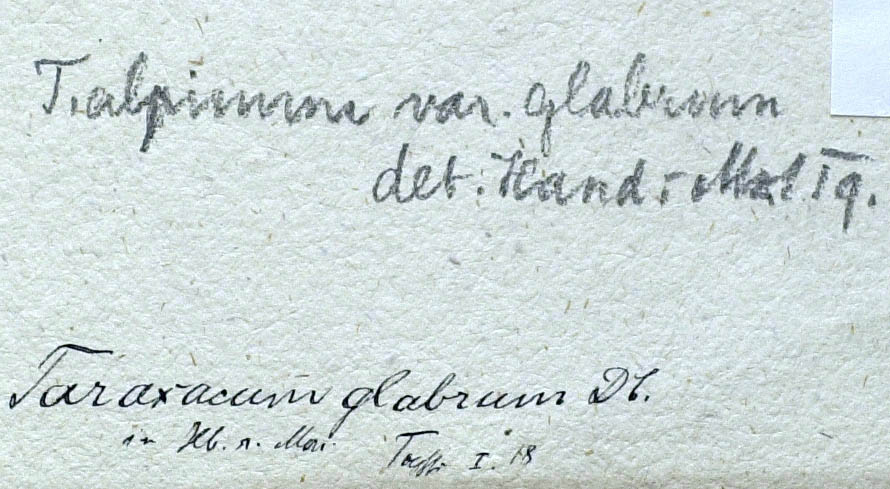 T. alpinum var. glabrum
det. Hand.-Mzt Tg.
Taraxacum glabrum DC.
in Hb. n. I. 18